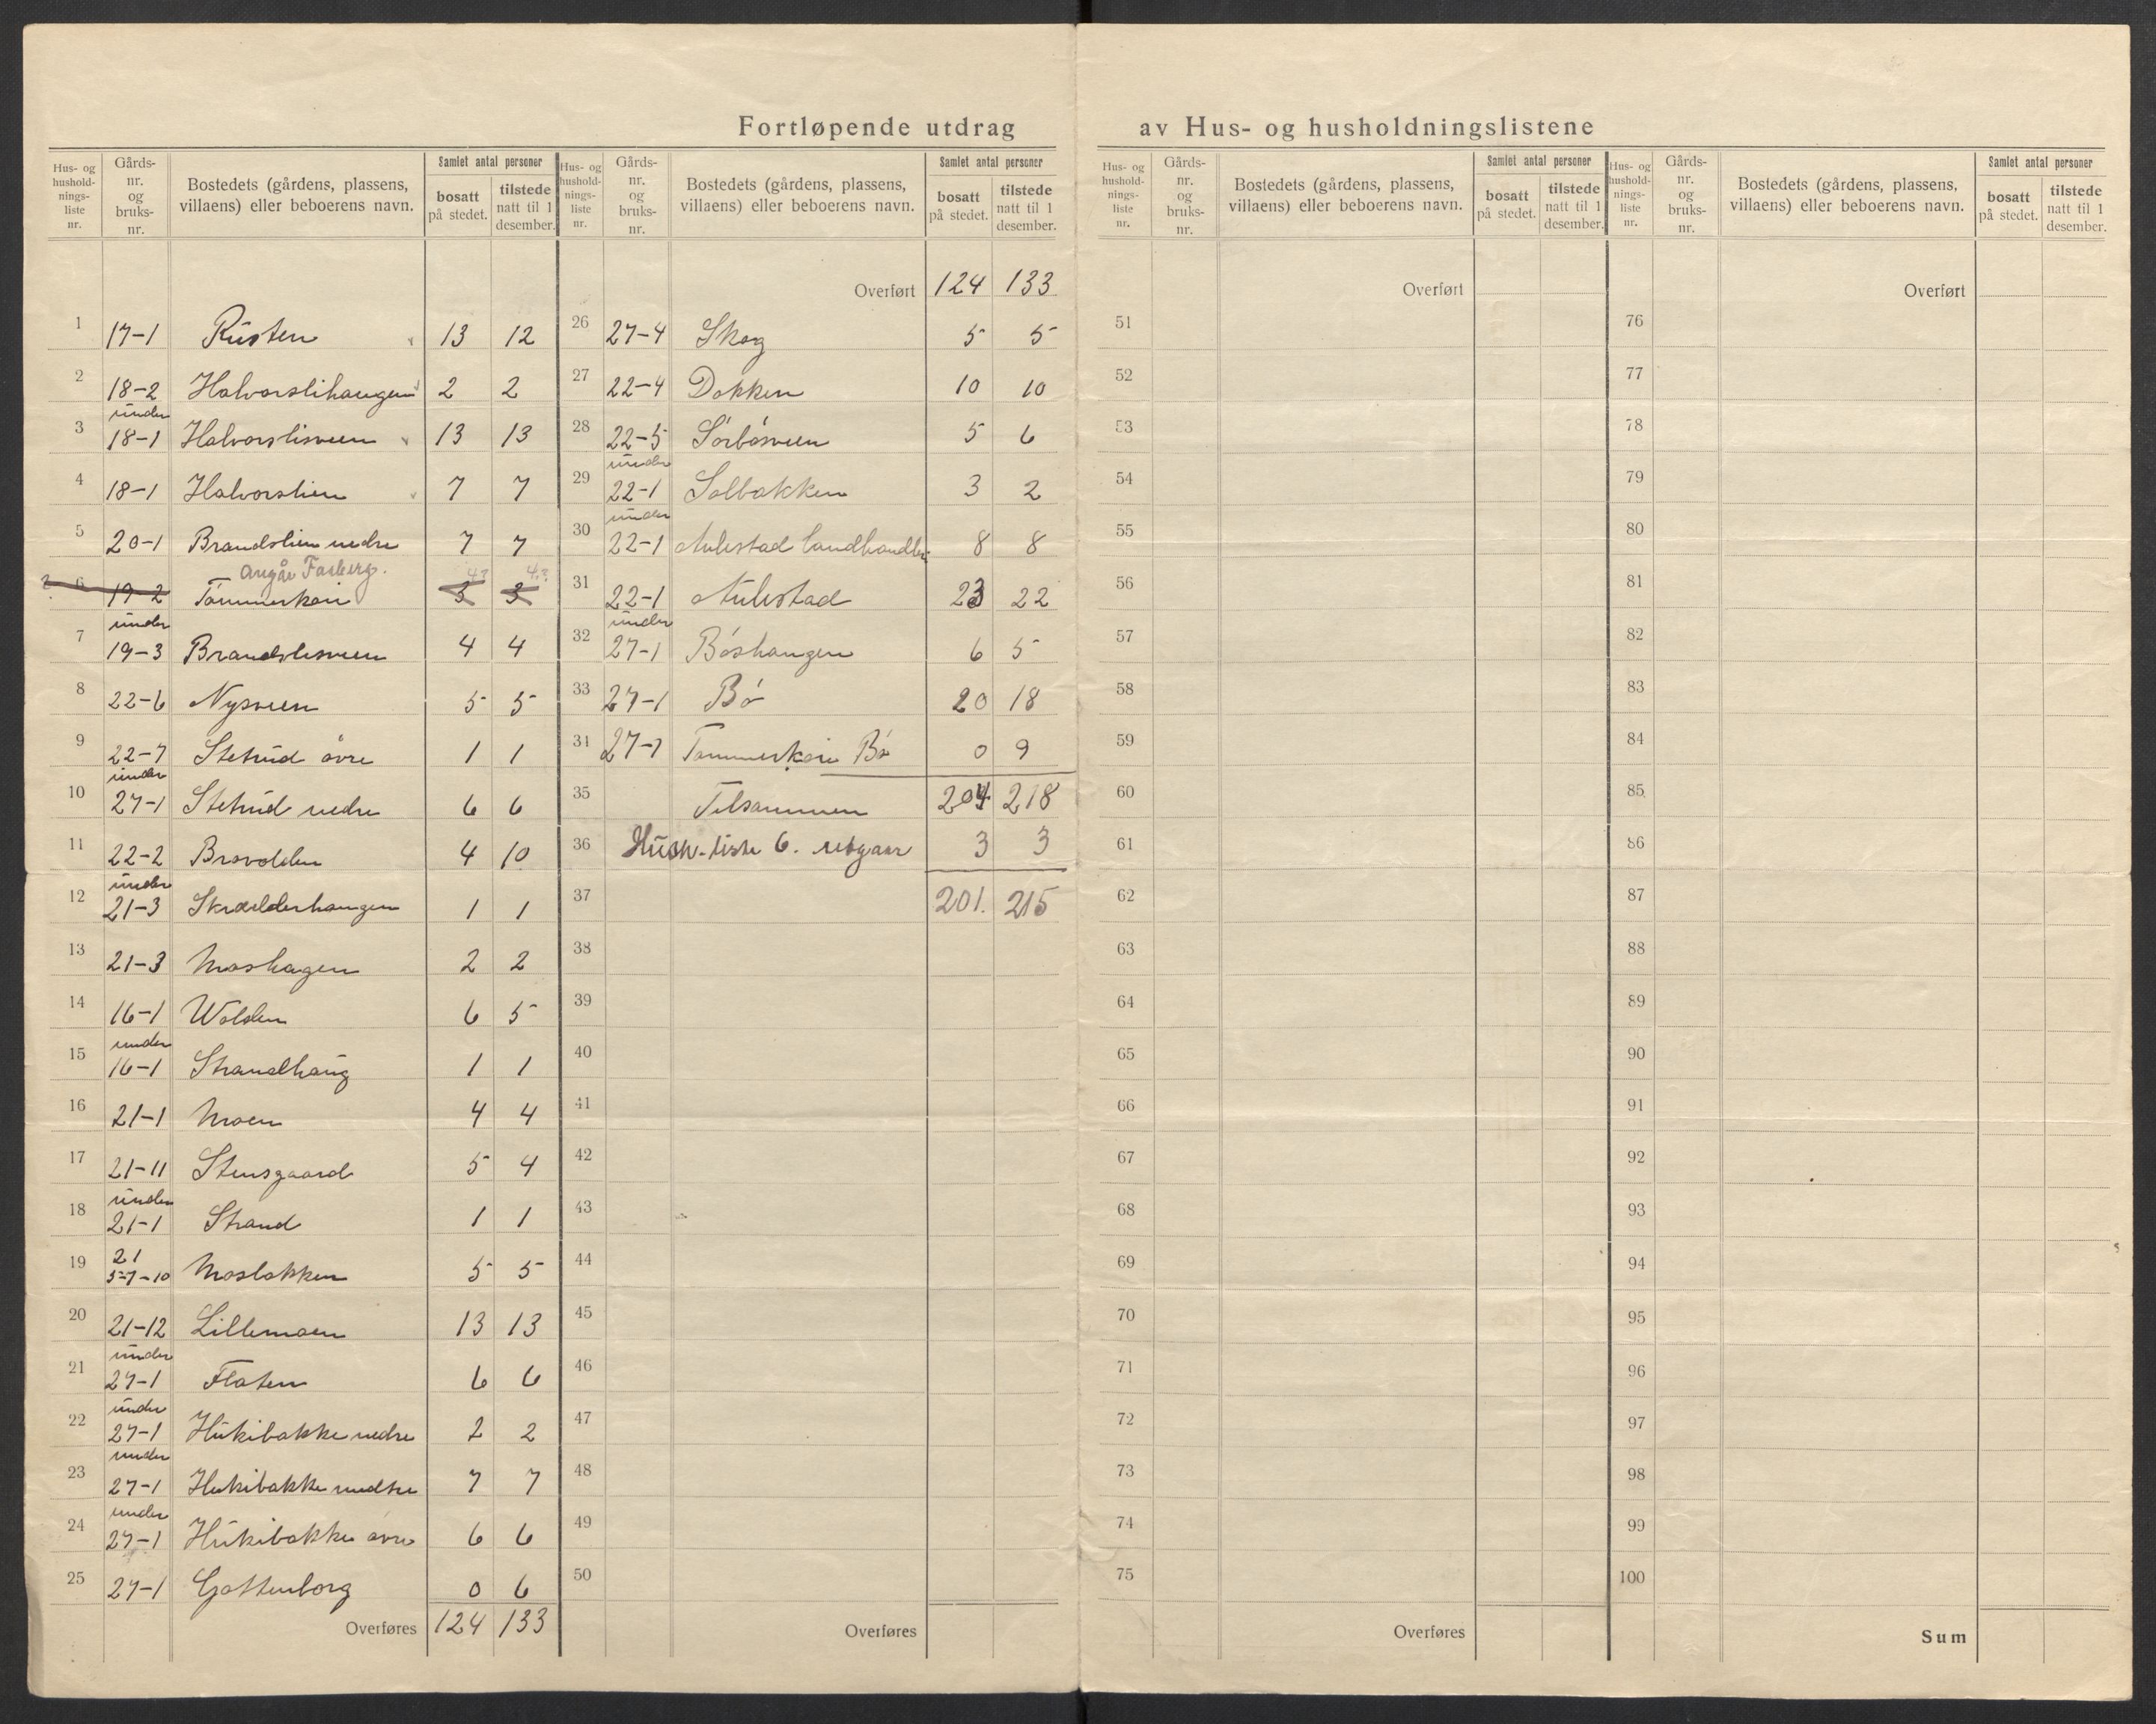 Fortløpende utdrag av Hus- og husholdningslistene
Hus- og hushold-nings-liste nr. Gårds-nr. og bruks-nr. Bostedets (gårdens, plassens, villaens) eller beboerens navn. Samlet antal personer bosatt på stedet. tilstede natt til 1 desember.
1 17-1 Rusten 13 12
2 18-2 Halvorslihaugen 2 2
3 under 18-1 Halvorslisveen 13 13
4 18-1 Halvorslien 7 7
5 20-1 Brandslien nedre 7 7
angår Faaberg. 4? 4?
? 6 19-2 Tømmerkoie 3 3
7 under 19-3 Brandslisveen 4 4
8 22-6 Nysveen 5 5
9 22-7 Stetrud øvre 1 1
10 under 27-1 Stetrud nedre 6 6
11 22-2 Brovolden 4 10
12 under 21-3 Skrælderhaugen 1 1
13 21-3 Moshagen 2 2
14 16-1 Wolden 6 5
15 under 16-1 Strandhaug 1 1
16 21-1 Moen 4 4
17 21-11 Stensgaard 5 4
18 under 21-1 Strand 1 1
19 21 5-7-10 Mosbakken 5 5
20 21-12 Lillemoen 13 13
21 under 27-1 Flaten 6 6
22 under 27-1 Hukibakke nedre 2 2
23 under 27-1 Hukibakke midtre 7 7
24 under 27-1 Hukibakke øvre 6 6
25 27-1 Gottenborg 0 6
Overføres 124 133
Hus- og hushold-nings-liste nr. Gårds-nr. og bruks-nr. Bostedets (gårdens, plassens, villaens) eller beboerens navn. Samlet antal personer bosatt på stedet. tilstede natt til 1 desember.
Overført 124 133
26 27-4 Skog 5 5
27 22-4 Dokken 10 10
28 22-5 Sørbøsveen 5 6
29 under 22-1 Solbakken 3 2
30 under 22-1 Aulestad landhandleri 8 8
31 22-1 Aulestad 23 22
32 under 27-1 Bøshaugen 6 5
33 27-1 Bø 20 18
34 27-1 Tømmerkoie Bø 0 9
35 Tilsammen 204 218
36 Hush.-liste 6. utgaar 3 3
37 201. 215
38
39
40
41
42
43
44
45
46
47
48
49
50
Overføres
Hus- og hushold-nings-liste nr. Gårds-nr. og bruks-nr. Bostedets (gårdens, plassens, villaens) eller beboerens navn. Samlet antal personer bosatt på stedet. tilstede natt til 1 desember.
Overført
51
52
53
54
55
56
57
58
59
60
61
62
63
64
65
66
67
68
69
70
71
72
73
74
75
Overføres
Hus- og hushold-nings-liste nr. Gårds-nr. og bruks-nr. Bostedets (gårdens, plassens, villaens) eller beboerens navn. Samlet antal personer bosatt på stedet. tilstede natt til 1 desember.
Overført
76
77
78
79
80
81
82
83
84
85
86
87
88
89
90
91
92
93
94
95
96
97
98
99
100
Sum